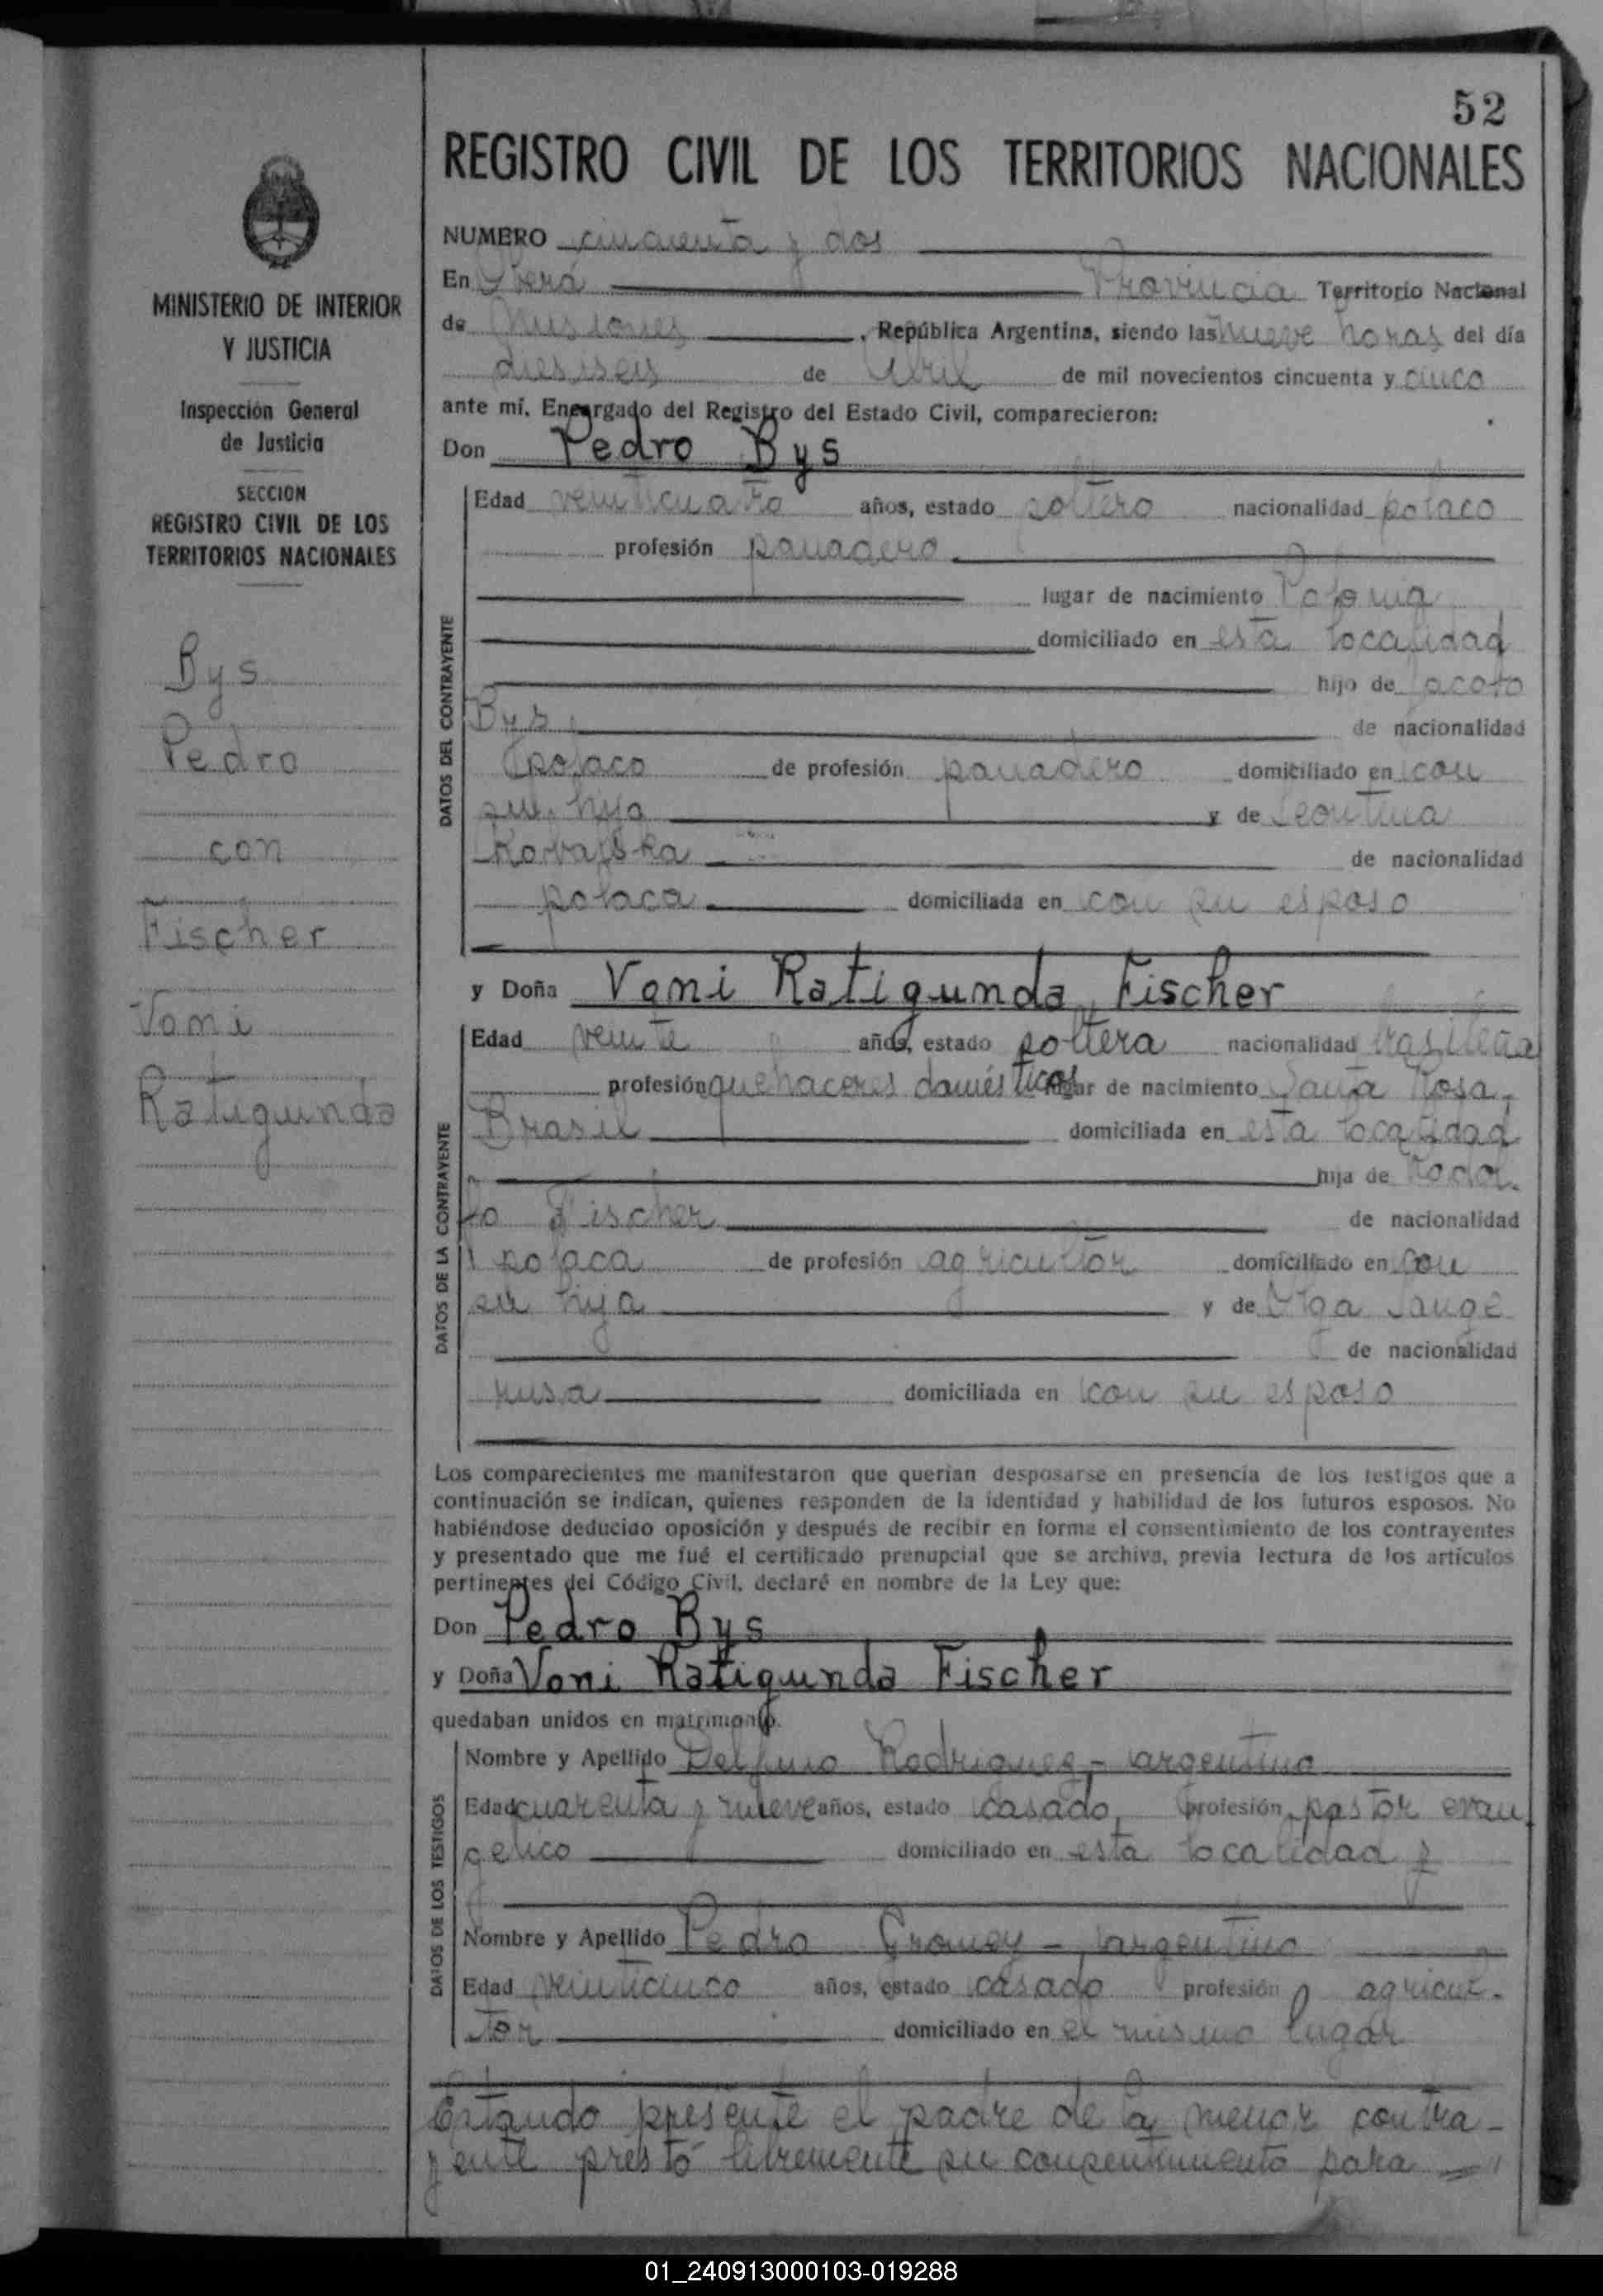 52
REGISTRO CIVIL DE LOS TERRITORIOS NACIONALES
MINISTERIO DE INTERIOR
Y JUSTICIA
Inspección General
de Justicia
SECCION
REGISTRO CIVIL DE LOS
TERRITORIOS NACIONALES
Bys
Pedro
con
Fischer
Voni
Ratigunda
NUMERO cincuenta y dos
En Oberá Provincia Territorio Nacional
de Misiones, República Argentina, siendo las nueve horas del día
diesiseis de Abril de mil novecientos cincuenta y cinco
ante mí, Encargado del Registro del Estado Civil, comparecieron:
Don Pedro Bys
DATOS DEL CONTRAYENTE
Edad veinticuatro años, estado soltero nacionalidad polaco
profesión panadero
lugar de nacimiento Polonia
domiciliado en esta localidad
hijo de Jacobo
Bys de nacionalidad
polaco de profesión panadero domiciliado en con
su hijo y de Leontina
Kovalska de nacionalidad
polaca domiciliada en con su esposo
y Doña Voni Ratigunda Fischer
DATOS DE LA CONTRAYENTE
Edad veinte años, estado soltera nacionalidad brasileña
profesión quehaceres domésticos lugar de nacimiento Santa Rosa,
Brasil domiciliada en esta localidad
hija de Rodol-
fo Fischer de nacionalidad
polaca de profesión agricultor domiciliado en con
su hija y de Olga Lange
de nacionalidad
rusa domiciliada en con su esposo
Los comparecientes me manifestaron que querían desposarse en presencia de los testigos que a
continuación se indican, quienes responden de la identidad y habilidad de los futuros esposos. No
habiéndose deducido oposición y después de recibir en forma el consentimiento de los contrayentes
y presentado que me fué el certificado prenupcial que se archiva, previa lectura de los artículos
pertinentes del Código Civil, declaré en nombre de la Ley que:
Don Pedro Bys
y Doña Voni Ratigunda Fischer
quedaban unidos en matrimonio.
DATOS DE LOS TESTIGOS
Nombre y Apellido Delfino Rodriguez - argentino
Edad cuarenta y nueve años, estado casado, profesión pastor evan
gelico domiciliado en esta localidad y
Nombre y Apellido Pedro - argentino
Edad veinticinco años, estado casado profesión agricul-
tor domiciliado en el mismo lugar
Estando presente el padre de la menor contra-
yente prestó libremente su consentimiento para
01_240913000103-019288